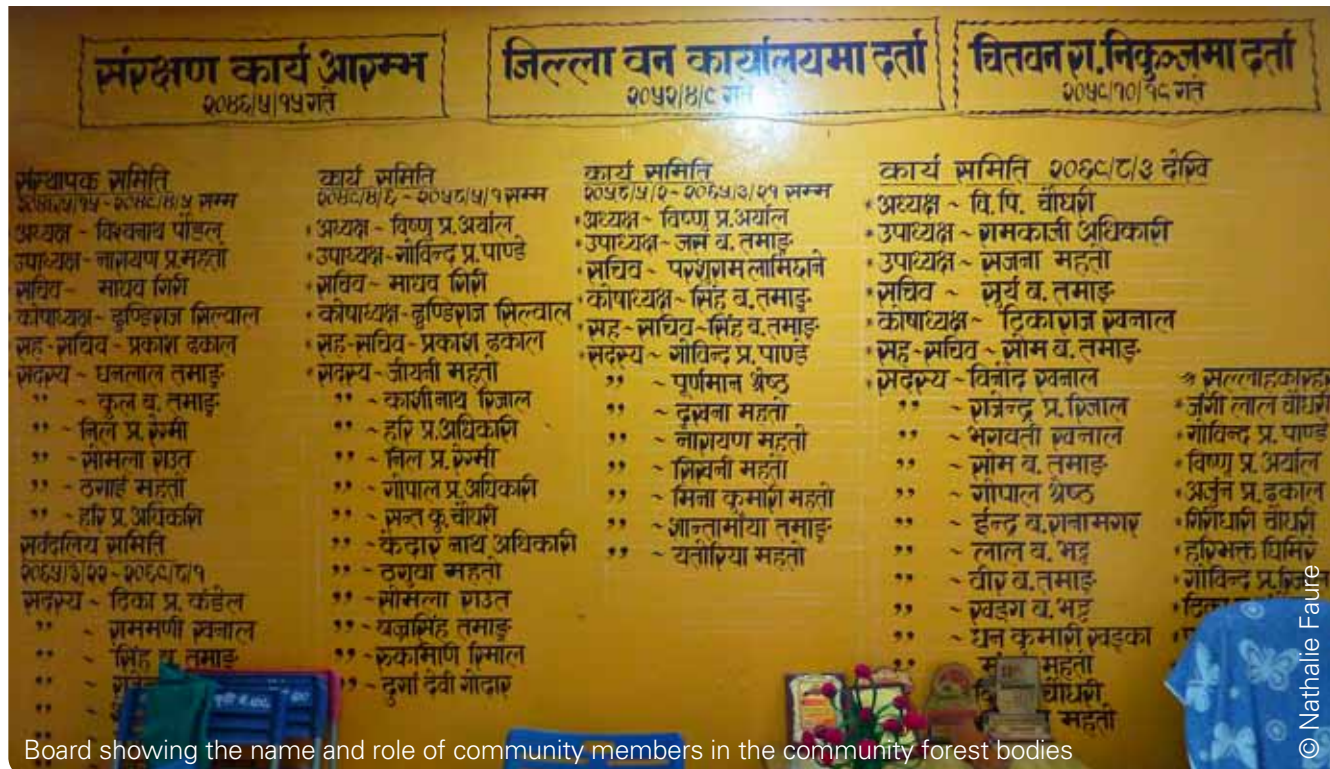 संरक्षण कार्य आरम्भ
२०४६/५/१५ गते
जिल्ला वन कार्यालयमा दर्ता
२०५२/४/९ गते
चितवन रा. निकुञ्जमा दर्ता
२०५८/१०/१८ गते
संस्थापक समिति
अध्यक्ष ~ विश्वनाथ पौडेल
उपाध्यक्ष ~ नारायण प्र. महतो
सचिव ~ माधव गिरी
कोषाध्यक्ष ~ ढुण्डिराज सिल्वाल
सह-सचिव ~ प्रकाश ढकाल
सदस्य ~ धनलाल तमाङ
" ~ कुल ब. तमाङ
" ~ निल प्र. रेग्मी
" ~ सोमला राउत
" ~ ठगाई महतो
" ~ हरि प्र. अधिकारी
सर्वदलिय समिति
२०६५/३/२२ ~ २०६९/८/१
सदस्य ~ टिका प्र. कंडेल
" ~ राममणी खनाल
" ~ सिंह ब. तमाङ
कार्य समिति
२०४९/४/६ ~ २०५८/५/१ सम्म
अध्यक्ष ~ विष्णु प्र. अर्याल
उपाध्यक्ष ~ गोविन्द प्र. पाण्डे
सचिव ~ माधव गिरी
कोषाध्यक्ष ~ ढुण्डिराज सिल्वाल
सह-सचिव ~ प्रकाश ढकाल
सदस्य ~ जीयनी महतो
" ~ काशीनाथ रिजाल
" ~ हरि प्र. अधिकारी
" ~ निल प्र. रेग्मी
" ~ गोपाल प्र. अधिकारी
" ~ सन्त कु. चौधरी
" ~ केदार नाथ अधिकारी
" ~ ठगवा महतो
" ~ सोमला राउत
" ~ बज्रसिंह तमाङ
" ~ रुकामणि रिमाल
" ~ दुर्गा देवी गोदार
कार्य समिति
२०५८/५/२ ~ २०६५/३/२१ सम्म
अध्यक्ष ~ विष्णु प्र. अर्याल
उपाध्यक्ष ~ जस ब. तमाङ
सचिव ~ परशुराम लामिछाने
कोषाध्यक्ष ~ सिंह ब. तमाङ
सह-सचिव ~ सिंह ब. तमाङ
सदस्य ~ गोविन्द प्र. पाण्डे
" ~ पूर्णमान श्रेष्ठ
" ~ दुखना महतो
" ~ नारायण महतो
" ~ सिखनी महतो
" ~ मिना कुमारी महतो
" ~ शान्तामाया तमाङ
" ~ यतोरिया महतो
कार्य समिति २०६९/८/३ देखि
अध्यक्ष ~ वि. पि. चौधरी
उपाध्यक्ष ~ रामकाजी अधिकारी
उपाध्यक्ष ~ सजना महतो
सचिव ~ सूर्य ब. तमाङ
कोषाध्यक्ष ~ टिकाराज खनाल
सह-सचिव ~ सोम ब. तमाङ
सदस्य ~ विनोद खनाल
" ~ राजेन्द्र प्र. रिजाल
" ~ भगवती खनाल
" ~ सोम ब. तमाङ
" ~ गोपाल श्रेष्ठ
" ~ ईन्द्र ब. रानामगर
" ~ लाल ब. भट्ट
" ~ वीर ब. तमाङ
" ~ खड्ग ब. भट्ट
" ~ धन कुमारी खड्का
महतो
चौधरी
महतो
जंगी लाल चौधरी
गोविन्द प्र. पाण्डे
विष्णु प्र. अर्याल
अर्जुन प्र. ढकाल
गिरीधारी चौधरी
हरिभक्त घिमिरे
गोविन्द प्र.
Board showing the name and role of community members in the community forest bodies
© Nathalie Faure